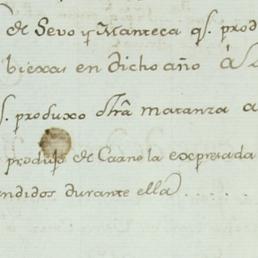 de Sevo y Manteca qe. prod
biexas en dicho año á
s. produxo dhâ matanza a
produjo de Carno la expretada
endidos durante ella . . . .